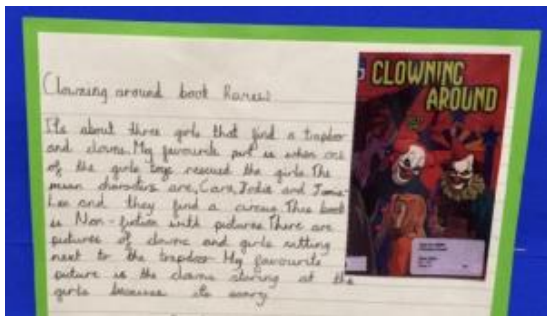 Clowning around book Rarew
CLOWNING
AROUND
It's about three girls that find a trapdoor
and clowns. My favourite part is when one
of the girls boys rescued the girls. The
main charators are, Cara, Jodie and Jamie-
Lee and they find a circus. This book
is Non-fiction with pictures. There are
pictures of clowns and girls sitting
next to the trapdoor. My favourite
picture is the clowns staring at the
girls because its scary